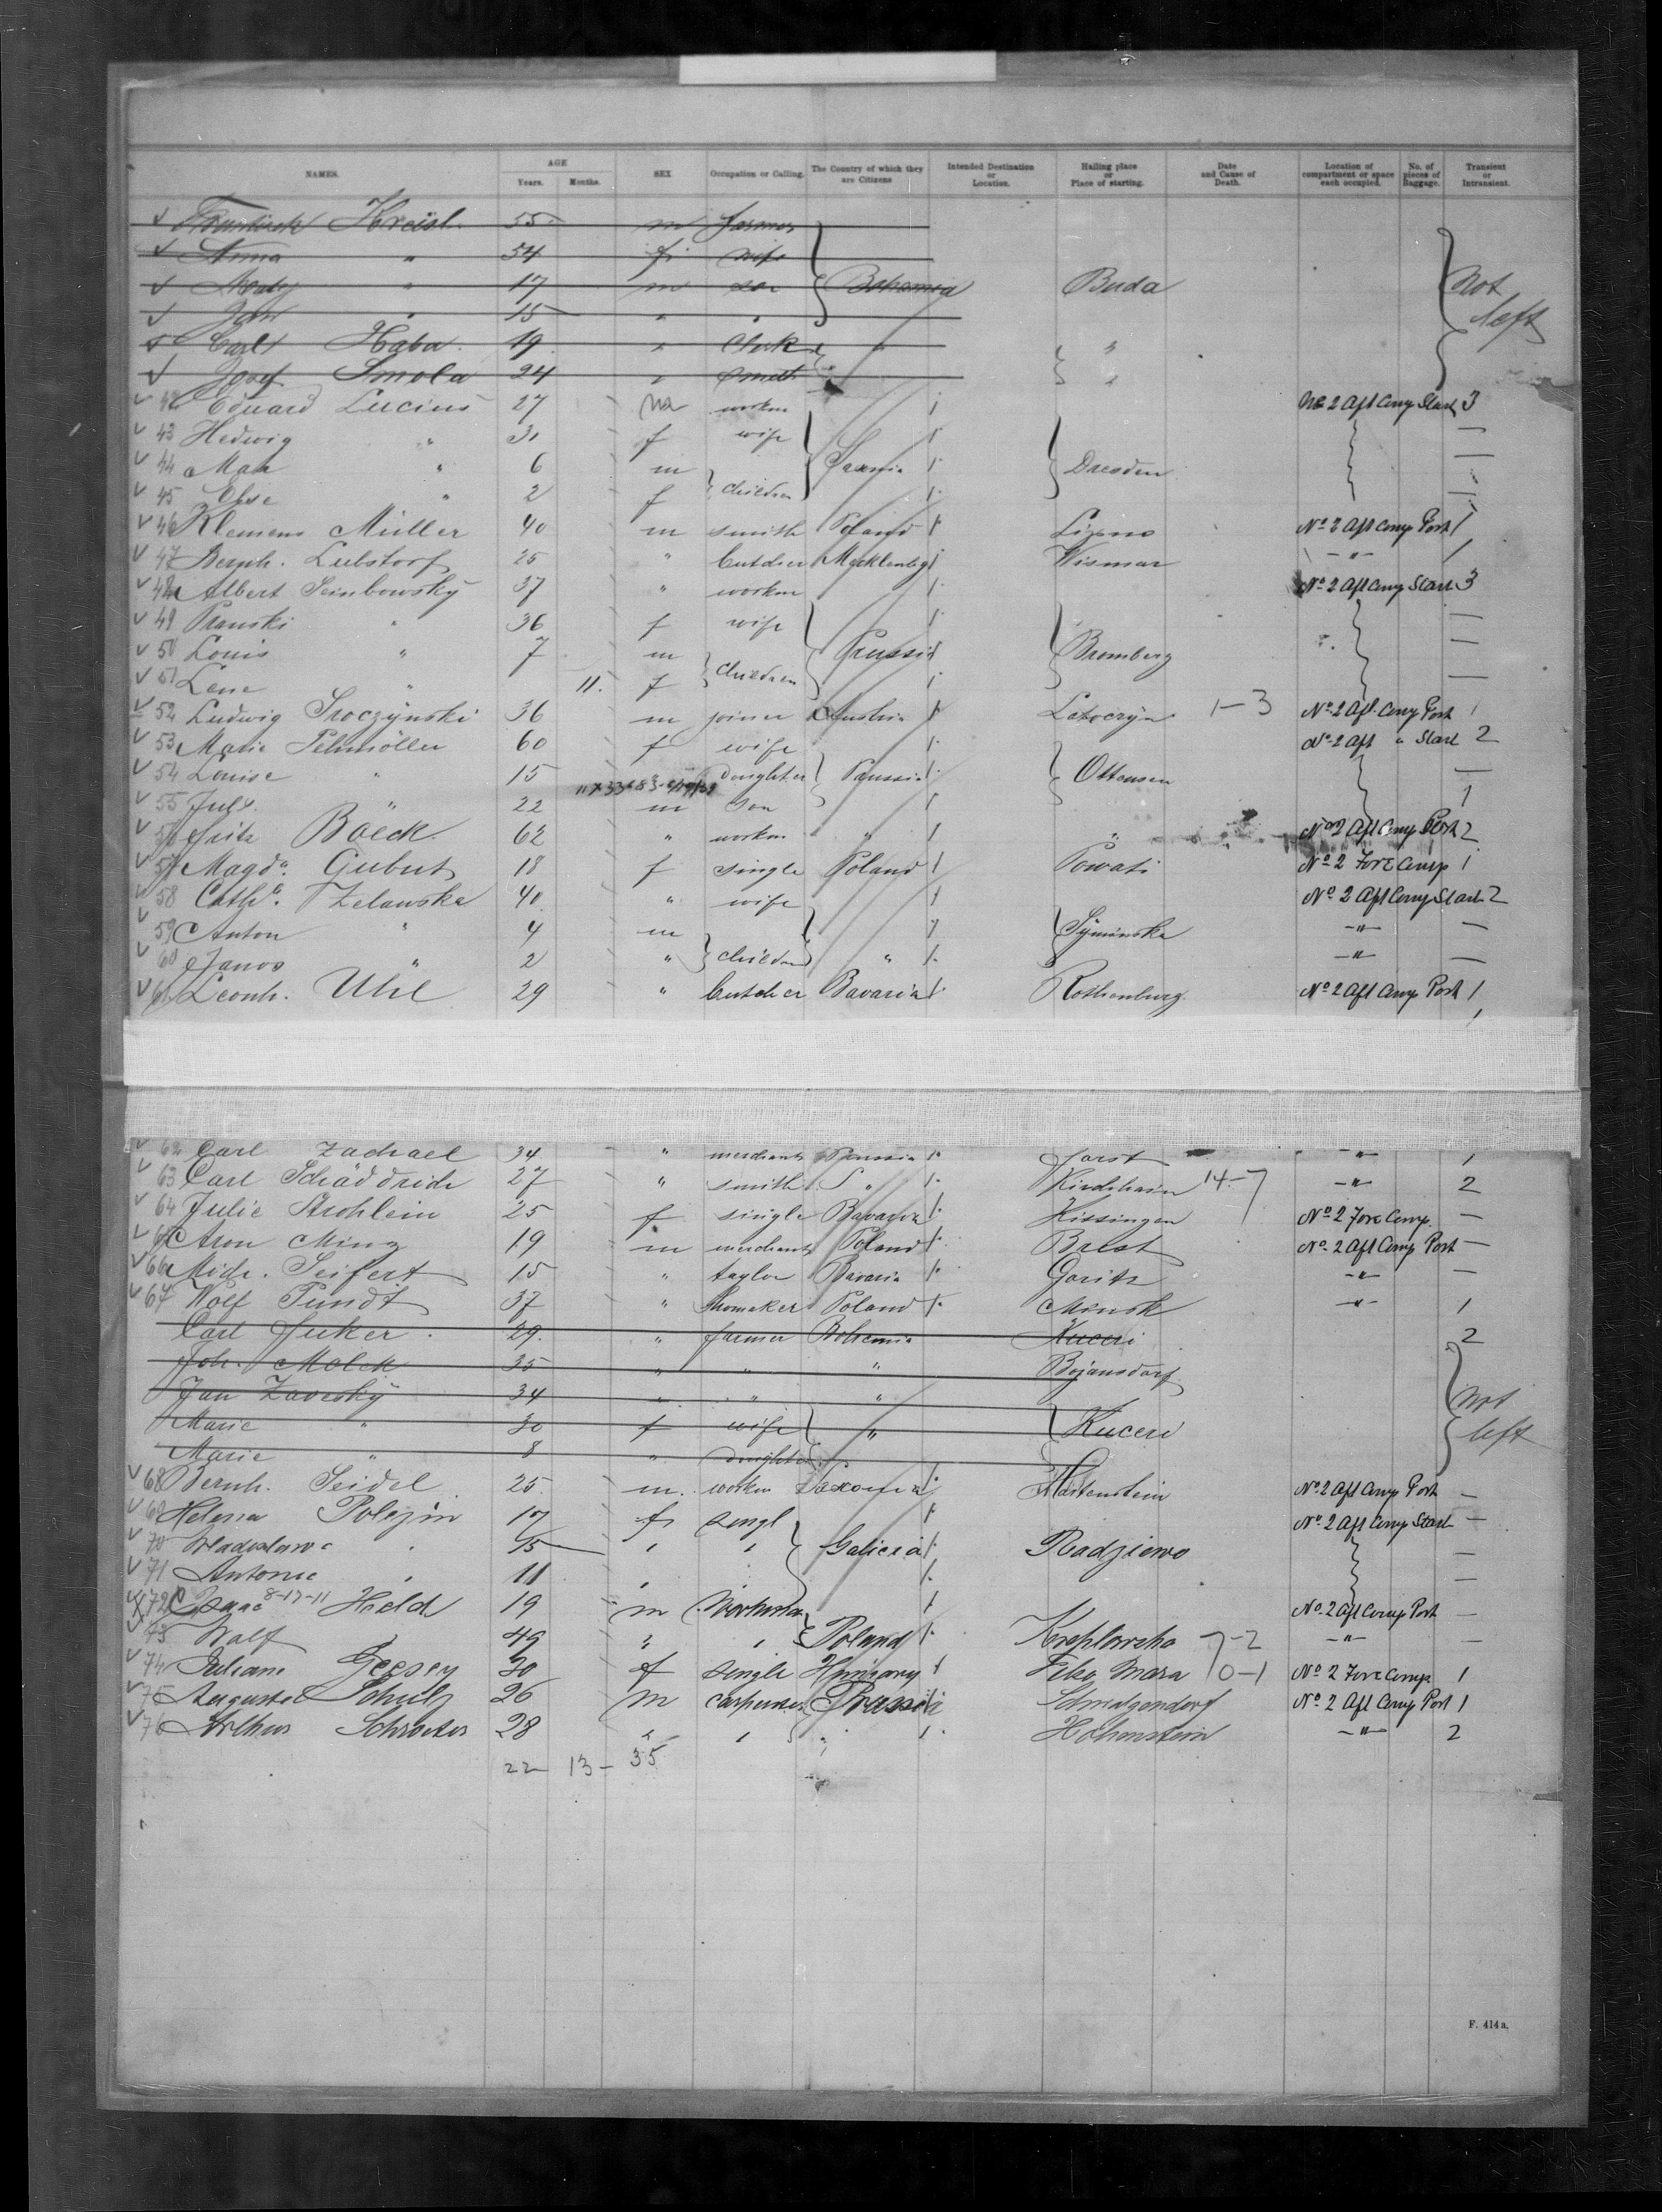 NAMES. AGE Years. Months. SEX Occupation or Calling. The Country of which they are Citizens Intended Destination or Location. Hailing place or Place of starting. Date and Cause of Death. Location of compartment or space each occupied. No. of pieces of Baggage. Transient or Intransient.
Kreisl 55 m farmer
Anna " 54 f. wife
17 m son Bohemia Buda Not
15 " " left
Carl Haba 19 " Clerk " "
Josef Smola 24 " Smith " "
42 Eduard Lucius 27 m workm No 2 Aft Comp Starb 3
43 Hedwig " 31 f wife —
44 Max " 6 m Saxonia Dresden —
45 Else " 2 f children —
46 Klemens Müller 40 m smith Poland Lipno No 2 Aft Comp Port 1
47 Bernh. Lubstorf 25 " butcher Mecklenbg Wismar " 1
48 Albert 37 " workm No 2 Aft Comp Starb 3
49 " 36 f wife —
50 Louis " 7 m Prussia Bromberg —
51 Lene " 11. f children —
52 Ludwig Sroczynski 36 m joiner Austria 1-3 No 2 Aft Comp Port 1
53 Marie Pehmöller 60 f wife No 2 Aft " Starb 2
54 Louise " 15 " doughter Prussia Ottensen —
55 Juls. " 22 m son 1
56 Fritz Boeck. 62 " workm " " No 2 Aft Comp Port 2
57 Magda. Gubut 18 f single Poland Powati No 2 Fore Comp 1
58 Catha. Zelawska 40 " wife No 2 Aft Comp Starb 2
59 Anton " 4 m Syminska " —
60 Janos " 2 " children " " —
61 Leonh. Uhl 29 " butcher Bavaria Rothenburg. No 2 Aft Comp Port 1
62 Carl Zachael 34 " merchant Prussia Forst " 1
63 Carl Schäddrich 27 " smith S " Kirchhain 14-7 " 2
64 Julie Strohlein 25 f single Bavaria Kissingen No 2 Fore Comp. —
65 Aron Minz 19 m merchant Poland Brest No 2 Aft Comp Port —
66 Mich. Seifert 15 " taylor Bavaria Goritz " —
67 Wolf Pundt 37 " shomaker Poland Minsk " 1
Carl Juker. 29. " farmer Bohemia Kuceri 2
Joh. Molck 35 " " " Bojansdorf
Jan Zavesky 34 " " " Not
Marie " 30 f wife " Kuceri left
Marie " 8 " doughter
68 Bernh. Seidel 25 m. workm Saxonia Hartenstein No 2 Aft Comp Port —
69 Helena Polezin 17 f. singl No 2 Aft Comp Starb —
70 " 15 " " Galicia Radziewo —
71 Antonie " 11 " —
72 Isaac 8-17-11 Held 19 m Workman No 2 Aft Comp Port —
73 Wolf " 49 " " Poland 7-2 " —
74 Juliane 20 f single Hungary 0-1 No 2 Fore Comp. 1
75 August Schulz 26 m carpenter Prussia Schmalgendorf No 2 Aft Comp Port 1
76 Arthur Schroeter 28 " " " Hohenstein " 2
22 13 - 35
F. 414a.